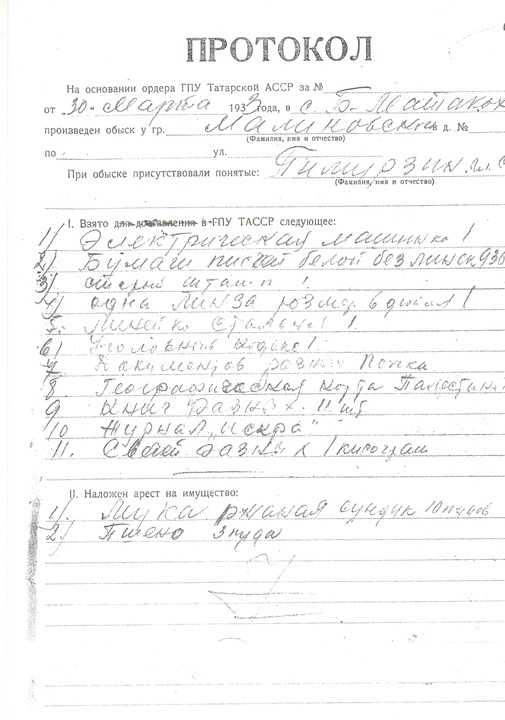 ПРОТОКОЛ
На основании ордера ГПУ Татарской АССР за №
от „30" Марта 1933 года, в с. Б-Матаках
произведен обыск у гр. Малиновский д. №
(Фамилия, имя и отчество)
по ул.
При обыске присутствовали понятые: Пилюрзин
(Фамилия, имя и отчество)
I. Взято для доставления в ГПУ ТАССР следующее:
1/ Электрическая машинка 1
2/ Бумаги писчей белой без 
3/ старый 1.
4/ одна линза 1
5. Линейка 1.
6/ Уголовный кодекс 1.
7 документов разных папка
8 Географическая карта Палестины
9 Книг разных 11 шт
10 Журнал „Искра"
11. разных 1 килограм
II. Наложен арест на имущество:
1/. Мука ржаная сундук 10 пудов
2/ Пшено 3 пуда